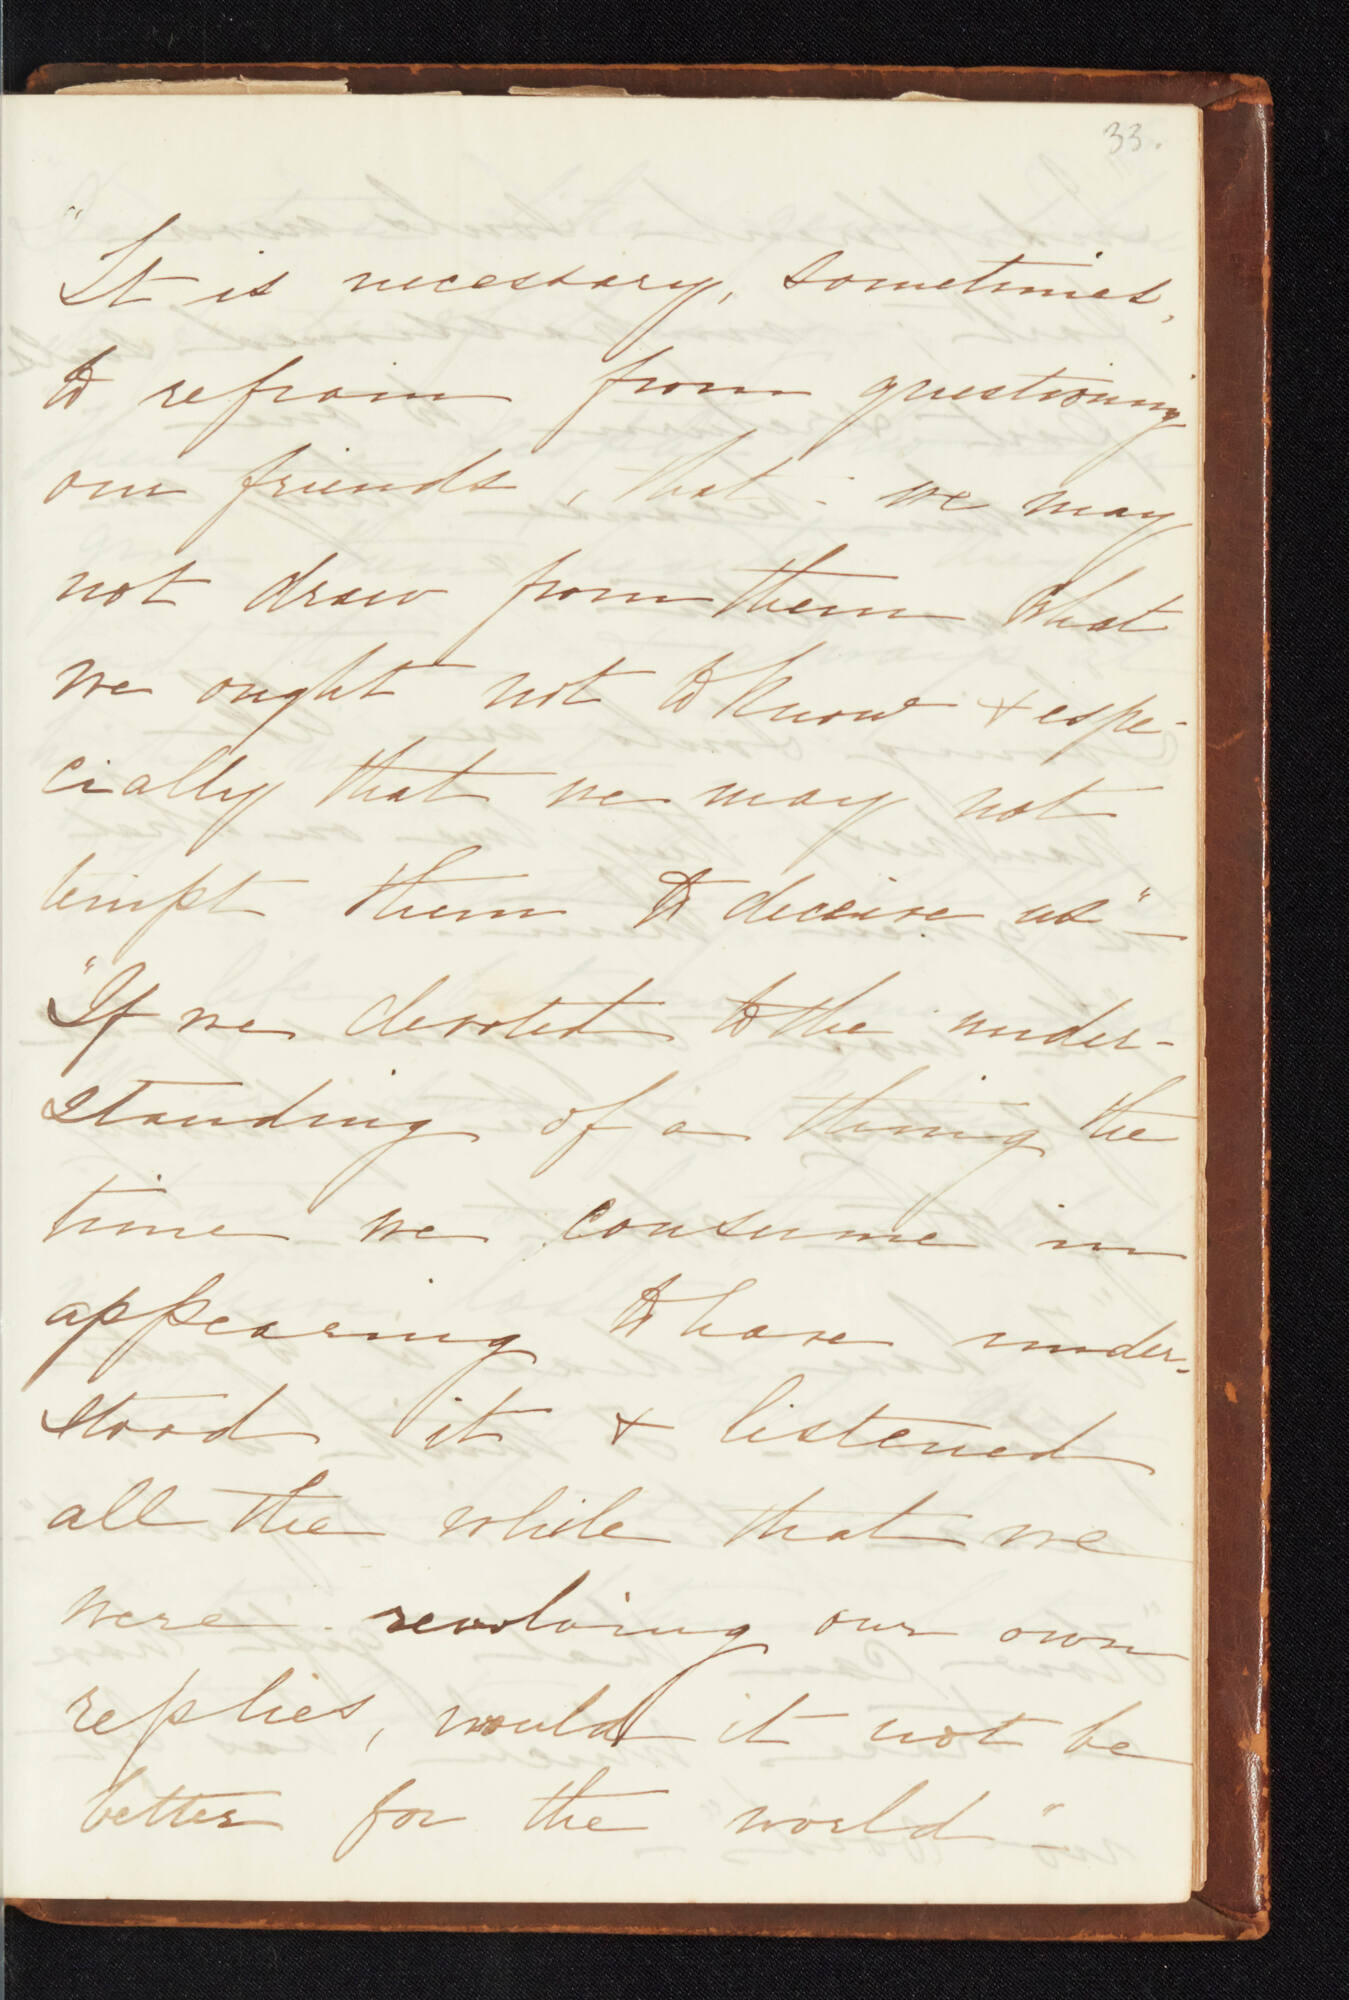 33.
"It is necessary, sometimes,
to refrain from questioning
our friends, that we may
not draw from them what
we ought not to know & espe-
cially that we may not
tempt them to deceive us"—
"If we devoted to the under-
standing of a thing the
time we consume in
appearing to have under-
stood it & listened
all the while that we
were revolving our own
replies, would it not be
better for the world"—